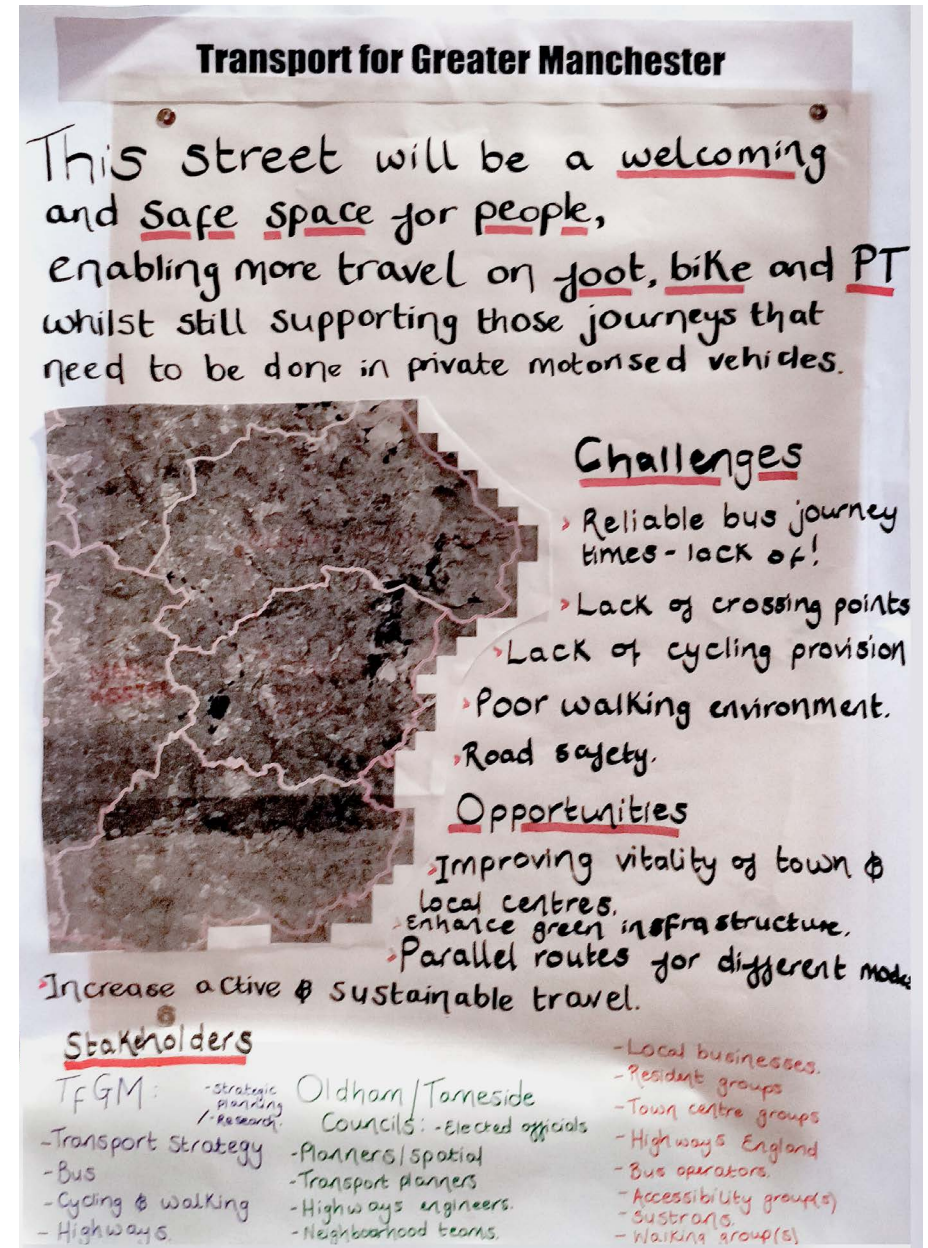 Transport for Greater Manchester
This street will be a welcoming
and safe space for people,
enabling more travel on foot, bike and PT
whilst still supporting those journeys that
need to be done in private motorised vehicles.
Challenges
› Reliable bus journey
times - lack of!
› Lack of crossing points
› Lack of cycling provision
› Poor walking environment.
› Road safety.
Opportunities
› Improving vitality of town &
local centres.
› Enhance green insfrastructure.
› Parallel routes for different modes
› Increase active & sustainable travel.
Stakeholders
TfGM:
- Strategic
planning
/ - Research.
- Transport strategy
- Bus
- Cycling & walking
- Highways.
Oldham/Tameside
Councils: - Elected officials
- Planners/spatial
- Transport planners
- Highways engineers.
- Neighbourhood teams.
- Local businesses.
- Resident groups
- Town centre groups
- Highways England
- Bus operators.
- Accessibility group(s)
- Sustrans.
- Walking group(s)